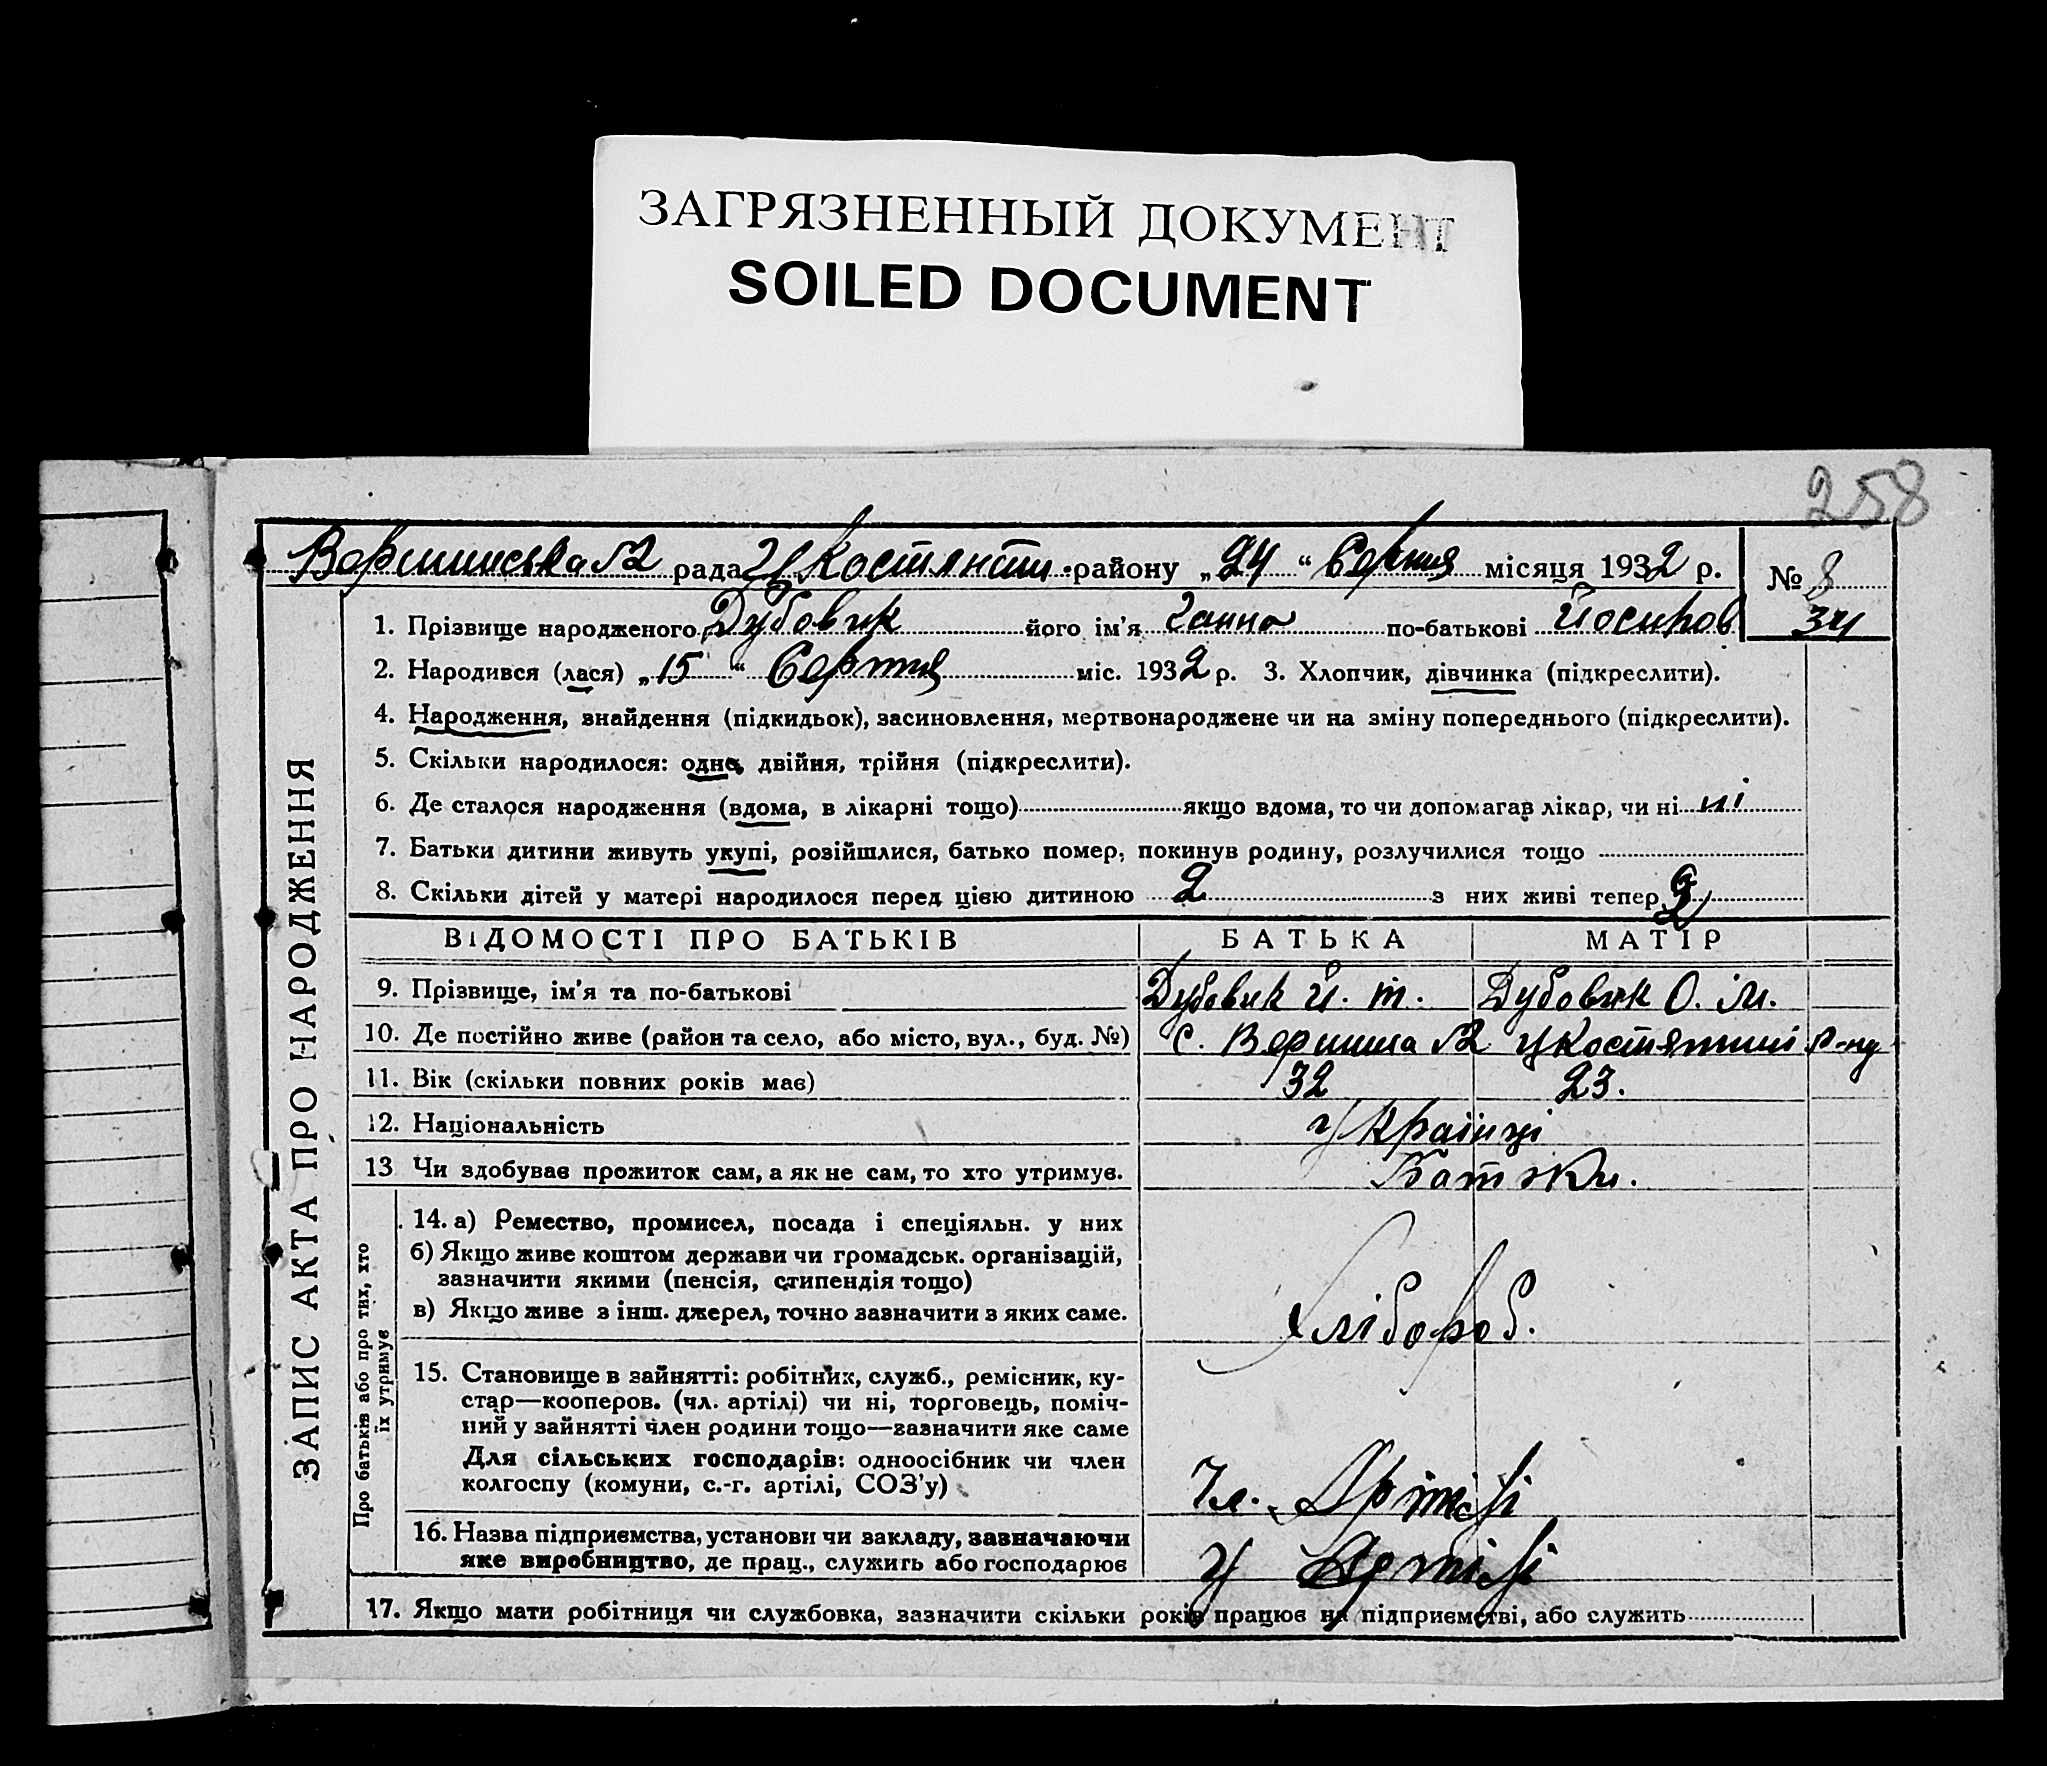 ЗАГРЯЗНЕННЫЙ ДОКУМЕНТ
SOILED DOCUMENT
258
рада Костянти. району „24“ Серпня місяця 1932 р.
№ 8
34
1. Прізвище народженого Дубовик його ім'я Ганна по-батькові Йосипов
2. Народився (лася) „15“ Серпня міс. 1932 р. 3. Хлопчик, дівчинка (підкреслити).
4. Народження, знайдення (підкидьок), засиновлення, мертвонароджене чи на зміну попереднього (підкреслити).
5. Скільки народилося: одне, двійня, трійня (підкреслити).
6. Де сталося народження (вдома, в лікарні тощо) якщо вдома, то чи допомагав лікар, чи ні ні
7. Батьки дитини живуть укупі, розійшлися, батько помер, покинув родину, розлучилися тощо
8. Скільки дітей у матері народилося перед цією дитиною 2 з них живі тепер 2
ВІДОМОСТІ ПРО БАТЬКІВ БАТЬКА МАТІР
9. Прізвище, ім'я та по-батькові Дубовик Й. т. Дубовик О. М.
10. Де постійно живе (район та село, або місто, вул., буд. №) с. Вершина №2 р-ну
11. Вік (скільки повних років має) 32 23.
12. Національність Українці
13 Чи здобуває прожиток сам, а як не сам, то хто утримує. Батьки.
14. а) Ремество, промисел, посада і спеціяльн. у них
б) Якщо живе коштом держави чи громадськ. організацій,
зазначити якими (пенсія, стипендія тощо)
в) Якщо живе з інш. джерел, точно зазначити з яких саме.
Хлібороб.
15. Становище в зайнятті: робітник, служб., ремісник, ку-
стар—кооперов. (чл. артілі) чи ні, торговець, поміч-
ний у зайнятті член родини тощо—зазначити яке саме
Для сільських господарів: одноосібник чи член
колгоспу (комуни, с.-г. артілі, СОЗ'у)
Чл. Артілі
16. Назва підприємства, установи чи закладу, зазначаючи
яке виробництво, де прац., служить або господарює
У Артілі
17. Якщо мати робітниця чи службовка, зазначити скільки років працює на підприємстві, або служить
ЗАПИС АКТА ПРО НАРОДЖЕННЯ
Про батьків або про тих, хто
їх утримує